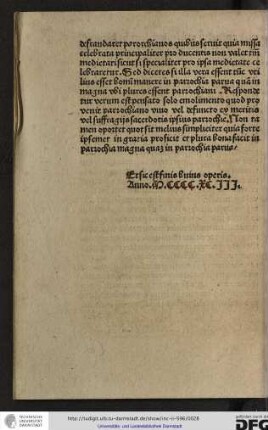 defraudaret parochianos quibus seruit quia missa
celebrata principaliter pro ducentis non valet tm̄
medietati sicut si specialiter pro ipsa medietate ce
lebraretur. Sed diceres si illa vera essent tūc vti
lius esset homī manere in parrochia parua quā in
magna vbi plures essent parrochiani Responde
tur verum est pensato solo emolimento quod pro
uenit parrochiano viuo vel defuncto ex meritis
vel suffragijs sacerdotis ipsius parrochie. Non ta
men oportet quot sit melius simpliciter quia forte
ipsemet in gratia proficit et plura bona facit in
parrochia magna quaꝫ in parrochia parua
Et sic est finis huius operis.
Anno. M.CCCC.XC.III.
http://tudigit.ulb.tu-darmstadt.de/show/inc-n-596/0028
Universitäts- und Landesbibliothek Darmstadt
gefördert durch die
DFG